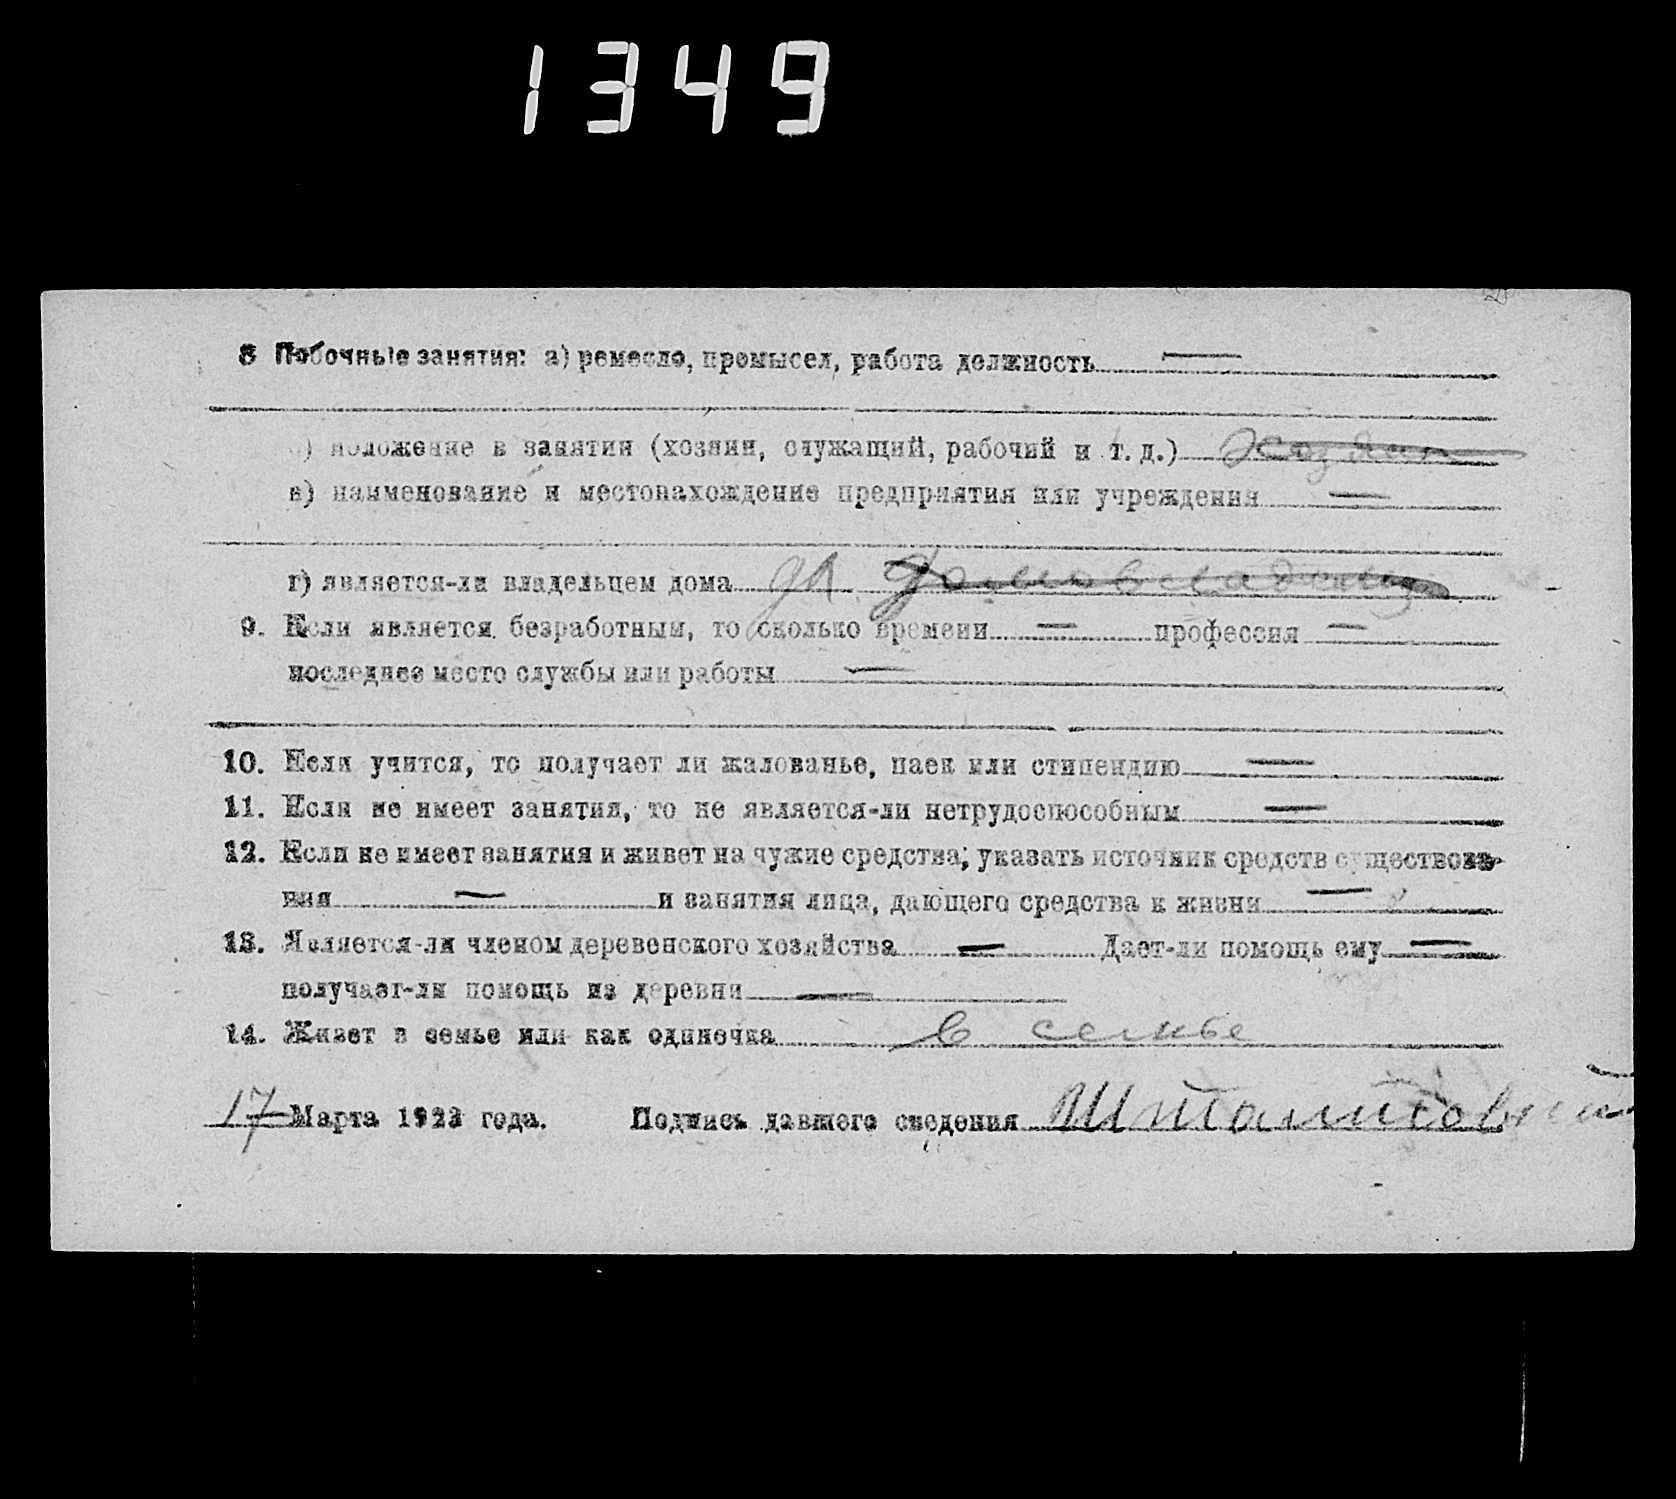 1349
8 Побочные занятия: а) ремесло, промысел, работа должность —
б) положение в занятии (хозяин, служащий, рабочий и т. д.) хозяин
в) наименование и местонахождение предприятия или учреждения —
г) является-ли владельцем дома да домовладелец
9. Если является безработным, то сколько времени — профессия —
последнее место службы или работы —
10. Если учится, то получает ли жалованье, паек или стипендию —
11. Если не имеет занятия, то не является-ли нетрудоспособным —
12. Если не имеет занятия и живет на чужие средства, указать источник средств существова-
ния — и занятия лица, дающего средства к жизни —
13. Является-ли членом деревенского хозяйства — Дает-ли помощь ему —
получает-ли помощь из деревни —
14. Живет в семье или как одиночка в семье
17 Марта 1923 года. Подпись давшего сведения